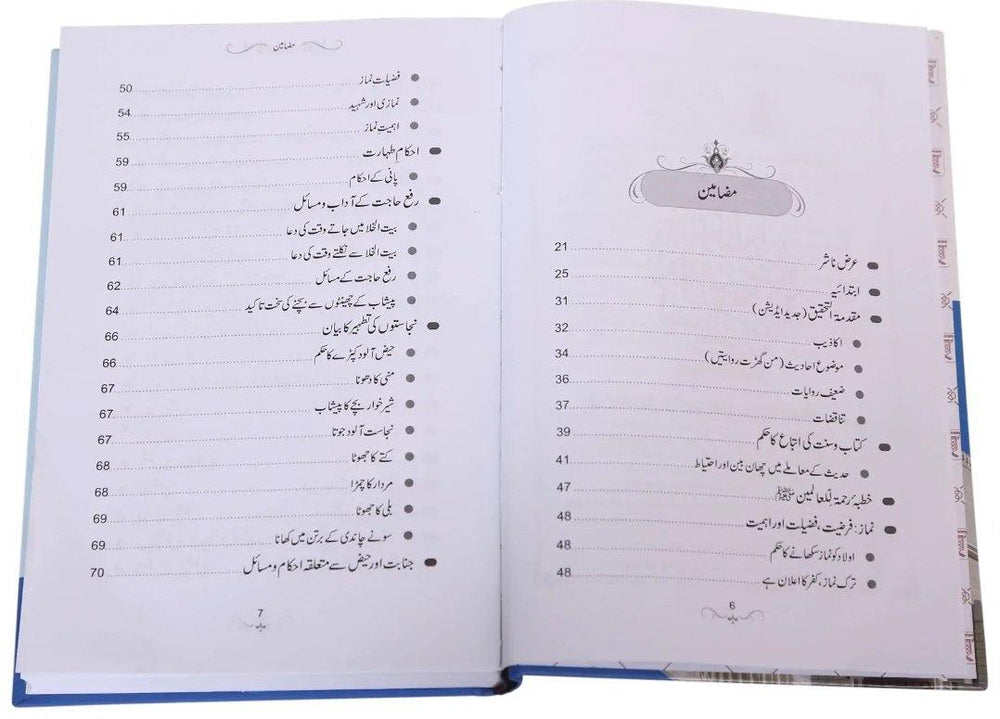 مضامین
عرض ناشر 21
ابتدائیہ 25
مقدمۃ التحقیق (جدید ایڈیشن) 31
اکاذیب 32
موضوع احادیث (من گھڑت روایتیں) 34
ضعیف روایات 36
تناقضات 37
کتاب و سنت کی اتباع کا حکم 39
حدیث کے معاملے میں چھان بین اور احتیاط 41
خطبۂ رحمۃ للعالمین ﷺ 47
نماز: فرضیت، فضیلت اور اہمیت 48
اولاد کو نماز سکھانے کا حکم 48
ترک نماز، کفر کا اعلان ہے 48
6
مضامین
فضیلت نماز 50
نمازی اور شہید 54
اہمیت نماز 55
احکام طہارت 59
پانی کے احکام 59
رفع حاجت کے آداب و مسائل 61
بیت الخلا میں جاتے وقت کی دعا 61
بیت الخلا سے نکلتے وقت کی دعا 61
رفع حاجت کے مسائل 62
پیشاب کے چھینٹوں سے بچنے کی سخت تاکید 64
نجاستوں کی تطہیر کا بیان 66
حیض آلود کپڑے کا حکم 66
منی کا دھونا 67
شیر خوار بچے کا پیشاب 67
نجاست آلود جوتا 67
کتے کا جھوٹا 68
مردار کا چمڑا 68
بلی کا جھوٹا 69
سونے چاندی کے برتن میں کھانا 69
جنابت اور حیض سے متعلقہ احکام و مسائل 70
7